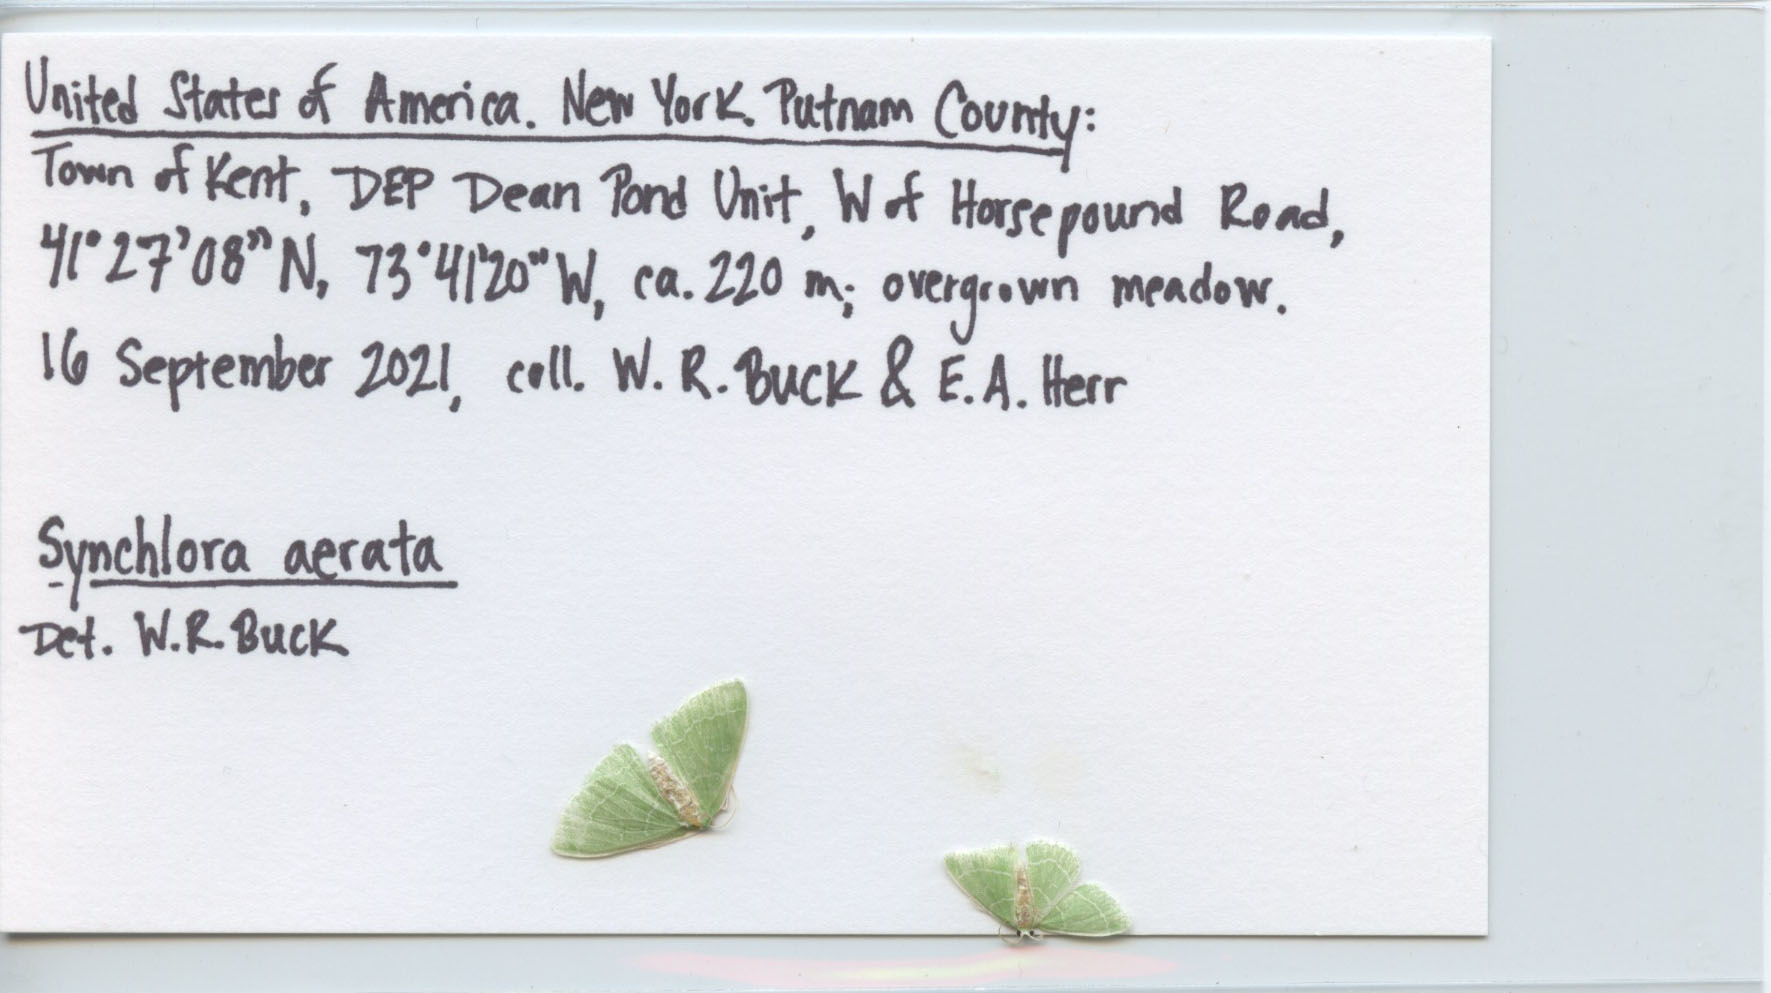 United States of America. New York. Putnam County:
Town of Kent, DEP Dean Pond Unit, W of Horsepound Road,
41°27'08"N, 73°41'20"W, ca. 220 m; overgrown meadow.
16 September 2021, coll. W. R. Buck & E.A. Herr
Synchlora aerata
Det. W.R. Buck